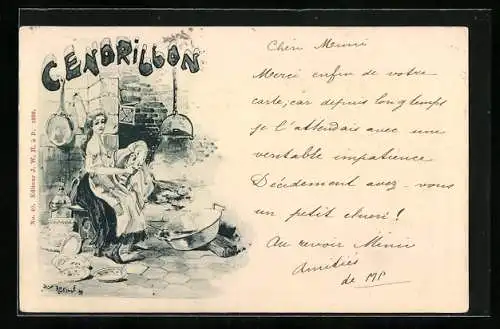 CENDRILLON
No. 40. Editeur J. W., H. à P. 1899.
Chère Mimi
Merci enfin de votre
carte, car depuis longtemps
je l'attendais avec une
veritable impatience
Décidement avez-vous
un petit
Au revoir Mimi
Amitiés
de MP